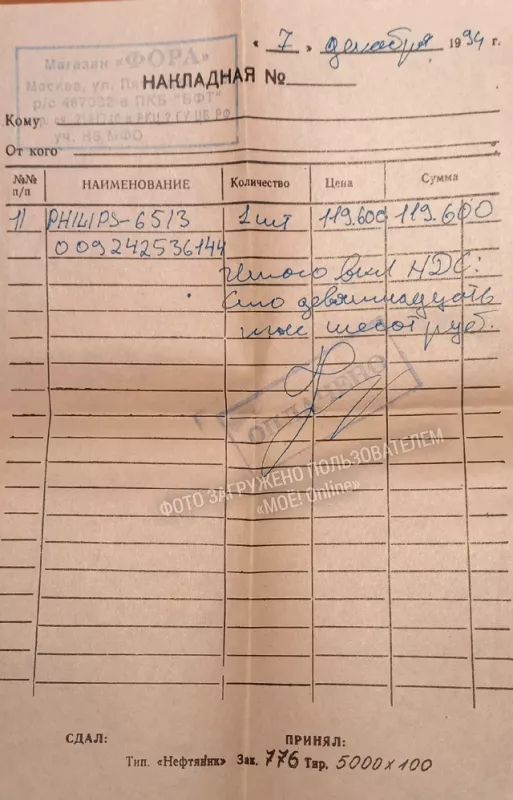 « 7 » декабря 1994 г.
Магазин «ФОРА»
Москва, ул.
р/с 467032 в ПКБ "БФТ"
в РКЦ 2 ГУ ЦБ РФ
уч. МФО
НАКЛАДНАЯ №
Кому
От кого
№№ п/п НАИМЕНОВАНИЕ Количество Цена Сумма
1) PHILIPS-6513 1 шт 119.600 119.600
009242536144
Итого вкл НДС:
Сто девятнадцать
тыс шесот руб.
ОПЛАЧЕНО
ФОТО ЗАГРУЖЕНО ПОЛЬЗОВАТЕЛЕМ
«МОЁ! Online»
СДАЛ: ПРИНЯЛ:
Тип. «Нефтяник» Зак. 776 Тир. 5000х100